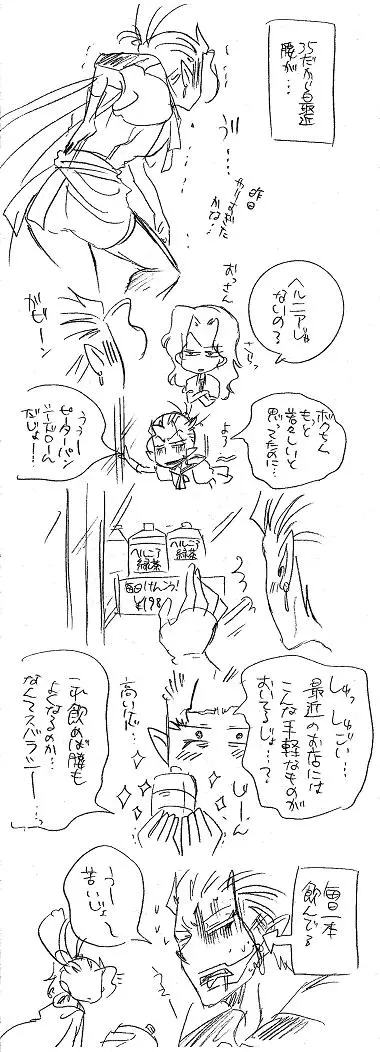 35だから最近
腰が…
う"…
昨日
やりすぎた
かな…
ヘルニアじゃ
ないの?
おっさん
ガビーン
ボクちん
もっと
若々しいと
思ってたのに…
よう
うぅー
ピーターパン
だじょー!
ヘルニア
緑茶
ヘルニア
緑茶
毎日けんこう!
¥198
しゅっしゅごい…
最近のお店には
こんな手軽なものが
おいてるじょ…?
じーん
高いケド…
これ飲めば腰も
よくなるのか…
なんてスバラシー…!
毎日一本
飲んでる
うー
苦いじょ〜